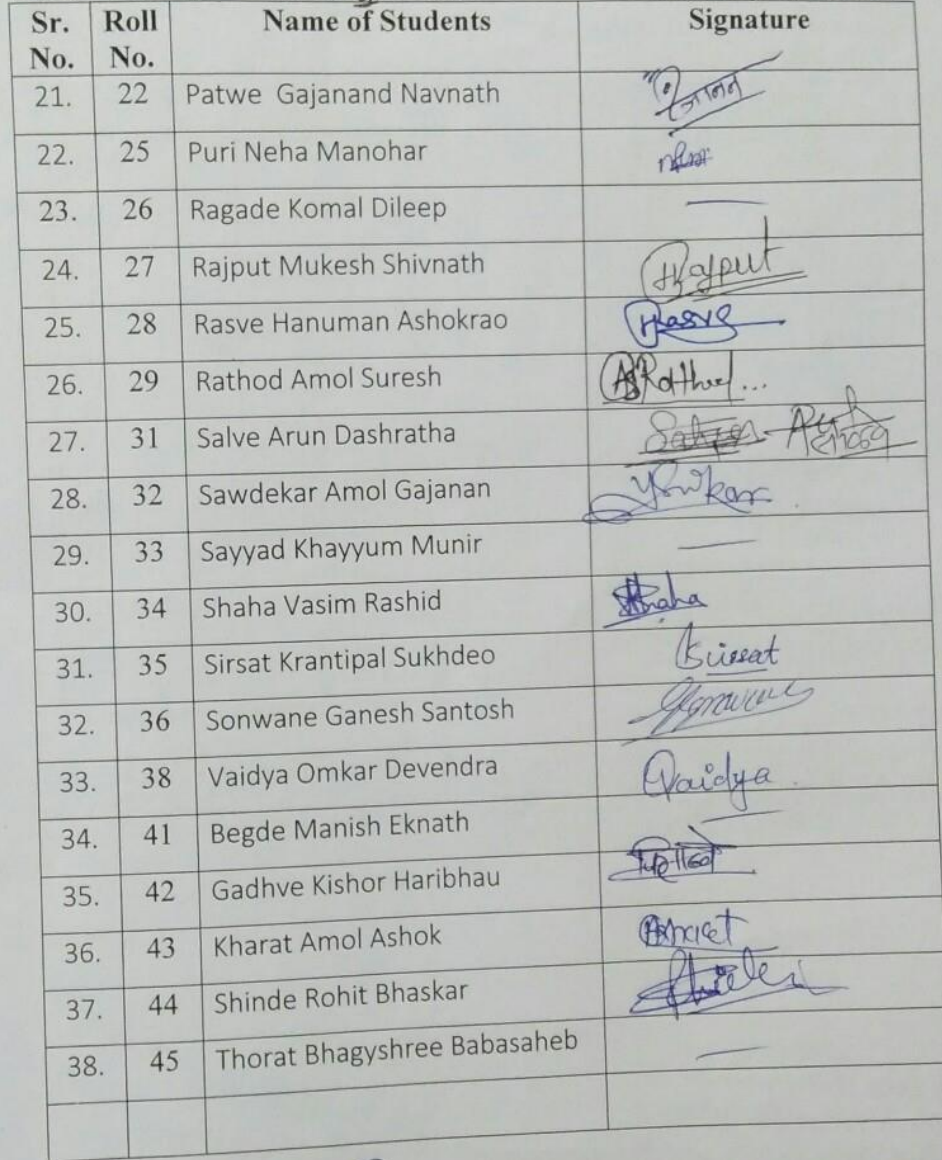 Sr. No. Roll No. Name of Students Signature
21. 22 Patwe Gajanand Navnath
22. 25 Puri Neha Manohar
23. 26 Ragade Komal Dileep —
24. 27 Rajput Mukesh Shivnath Rajput
25. 28 Rasve Hanuman Ashokrao Rasve
26. 29 Rathod Amol Suresh
27. 31 Salve Arun Dashratha
28. 32 Sawdekar Amol Gajanan
29. 33 Sayyad Khayyum Munir —
30. 34 Shaha Vasim Rashid
31. 35 Sirsat Krantipal Sukhdeo
32. 36 Sonwane Ganesh Santosh
33. 38 Vaidya Omkar Devendra Vaidya
34. 41 Begde Manish Eknath —
35. 42 Gadhve Kishor Haribhau
36. 43 Kharat Amol Ashok
37. 44 Shinde Rohit Bhaskar
38. 45 Thorat Bhagyshree Babasaheb —